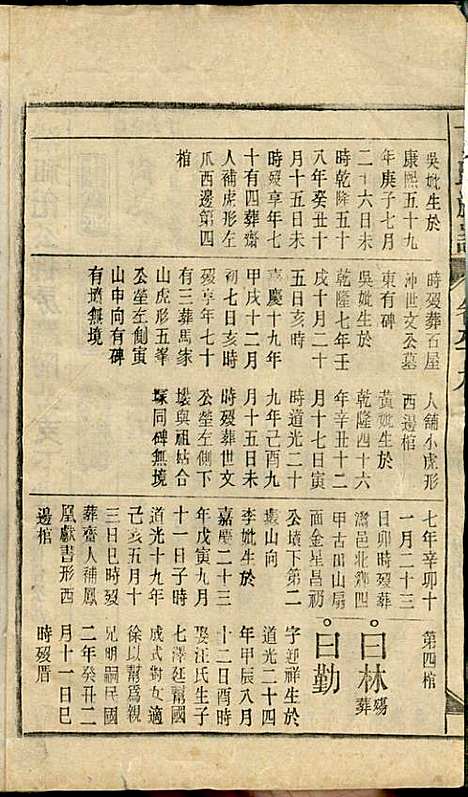 吳妣生於
康熙五十九
年庚子七月
二十六日未
時乾隆五十
八年癸丑十
月十五日未
時歿享年七
十有四葬齋
人補虎形左
爪西邊第四
棺
時歿葬石屋
沖世文公墓
東有碑
吳妣生於
乾隆七年壬
戌十月二十
五日亥時
嘉慶十九年
甲戌十二月
初七日亥時
歿享年七十
有三葬馬家
山虎形五峯
公塋左側寅
山申向有碑
有擴無境
人舖小虎形
西邊棺
黃妣生於
乾隆四十六
年辛丑十二
月十七日寅
時道光二十
九年己酉九
月十五日未
時歿葬世文
公塋左側下
塋與祖姑合
冢同碑無境
七年辛卯十
一月二十三
日卯時歿葬
瀟邑北鄉四
甲古田山扇
面金星昌礽
公墳下第二
叢山向
李妣生於
嘉慶二十三
年戊寅九月
十一日子時
道光十九年
己亥五月十
三日巳時歿
葬齋人補鳳
凰獻書形西
邊棺
第四棺
曰林殤葬
曰勤
字迎祥生於
道光二十四
年甲辰八月
十二日酉時
娶汪氏生子
七澤廷幫國
成式對女適
徐以幫爲親
兄明嗣民國
二年癸丑二
月十一日巳
時歿厝